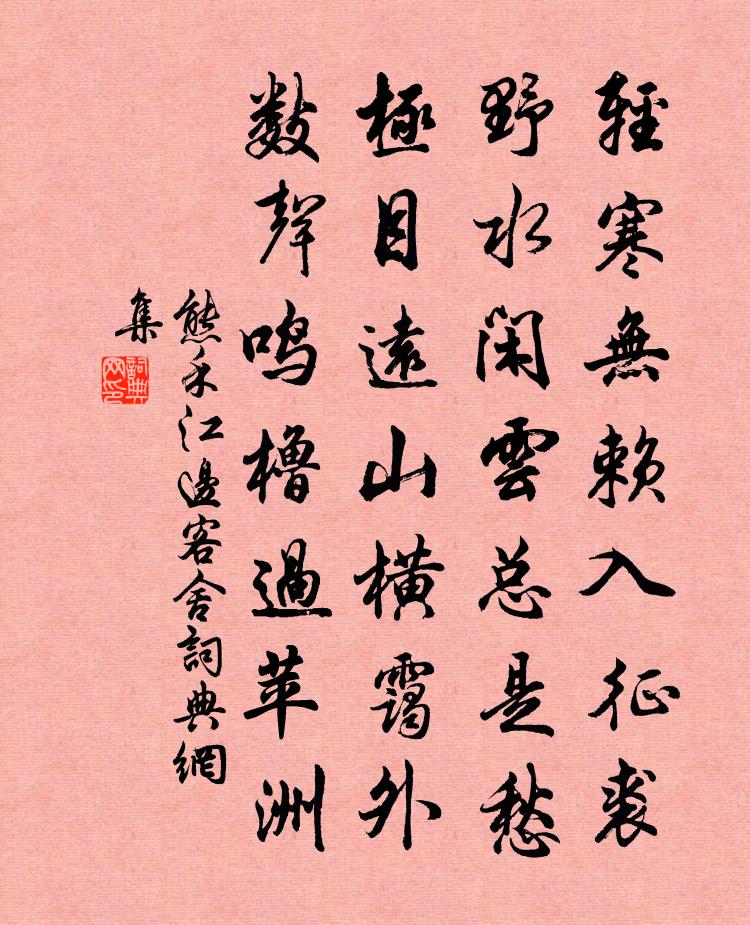 輕寒無賴入征裘
野水閑雲总是愁
極目遠山橫靄外
数聲鸣櫓過苹洲
熊禾江邊客舍詞典網
集
詞典网印